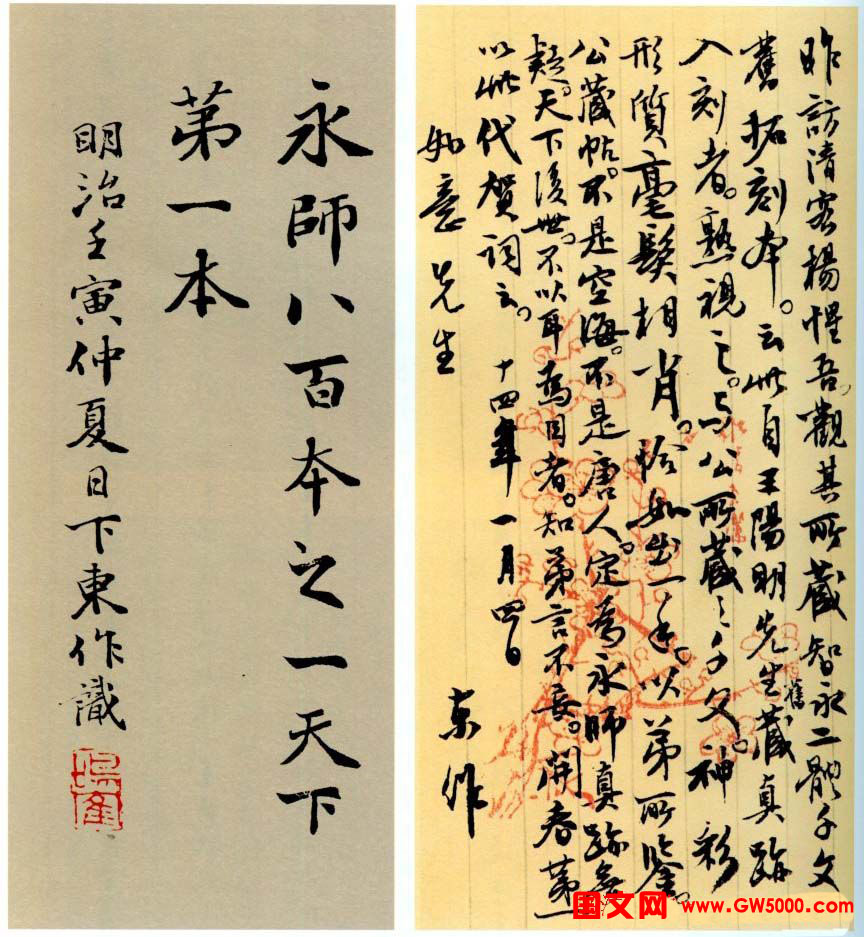 昨訪清客楊惺吾。觀其所藏智永二體千文
舊拓刻本。云此自王陽明先生舊藏真跡
入刻者。熟視之。與公所藏之千文。神彩
形質毫髮相肖。恰如出一手。以弟所鑒。
公藏帖。不是空海。不是唐人。定為永師真跡無
疑。天下後世。不以耳為目者。知弟言不妄。開春第一
以此代賀詞云。十四年一月四日
東作
如意先生
永師八百本之一天下
第一本
明治壬寅仲夏日下東作識
图文网 www.GW5000.com